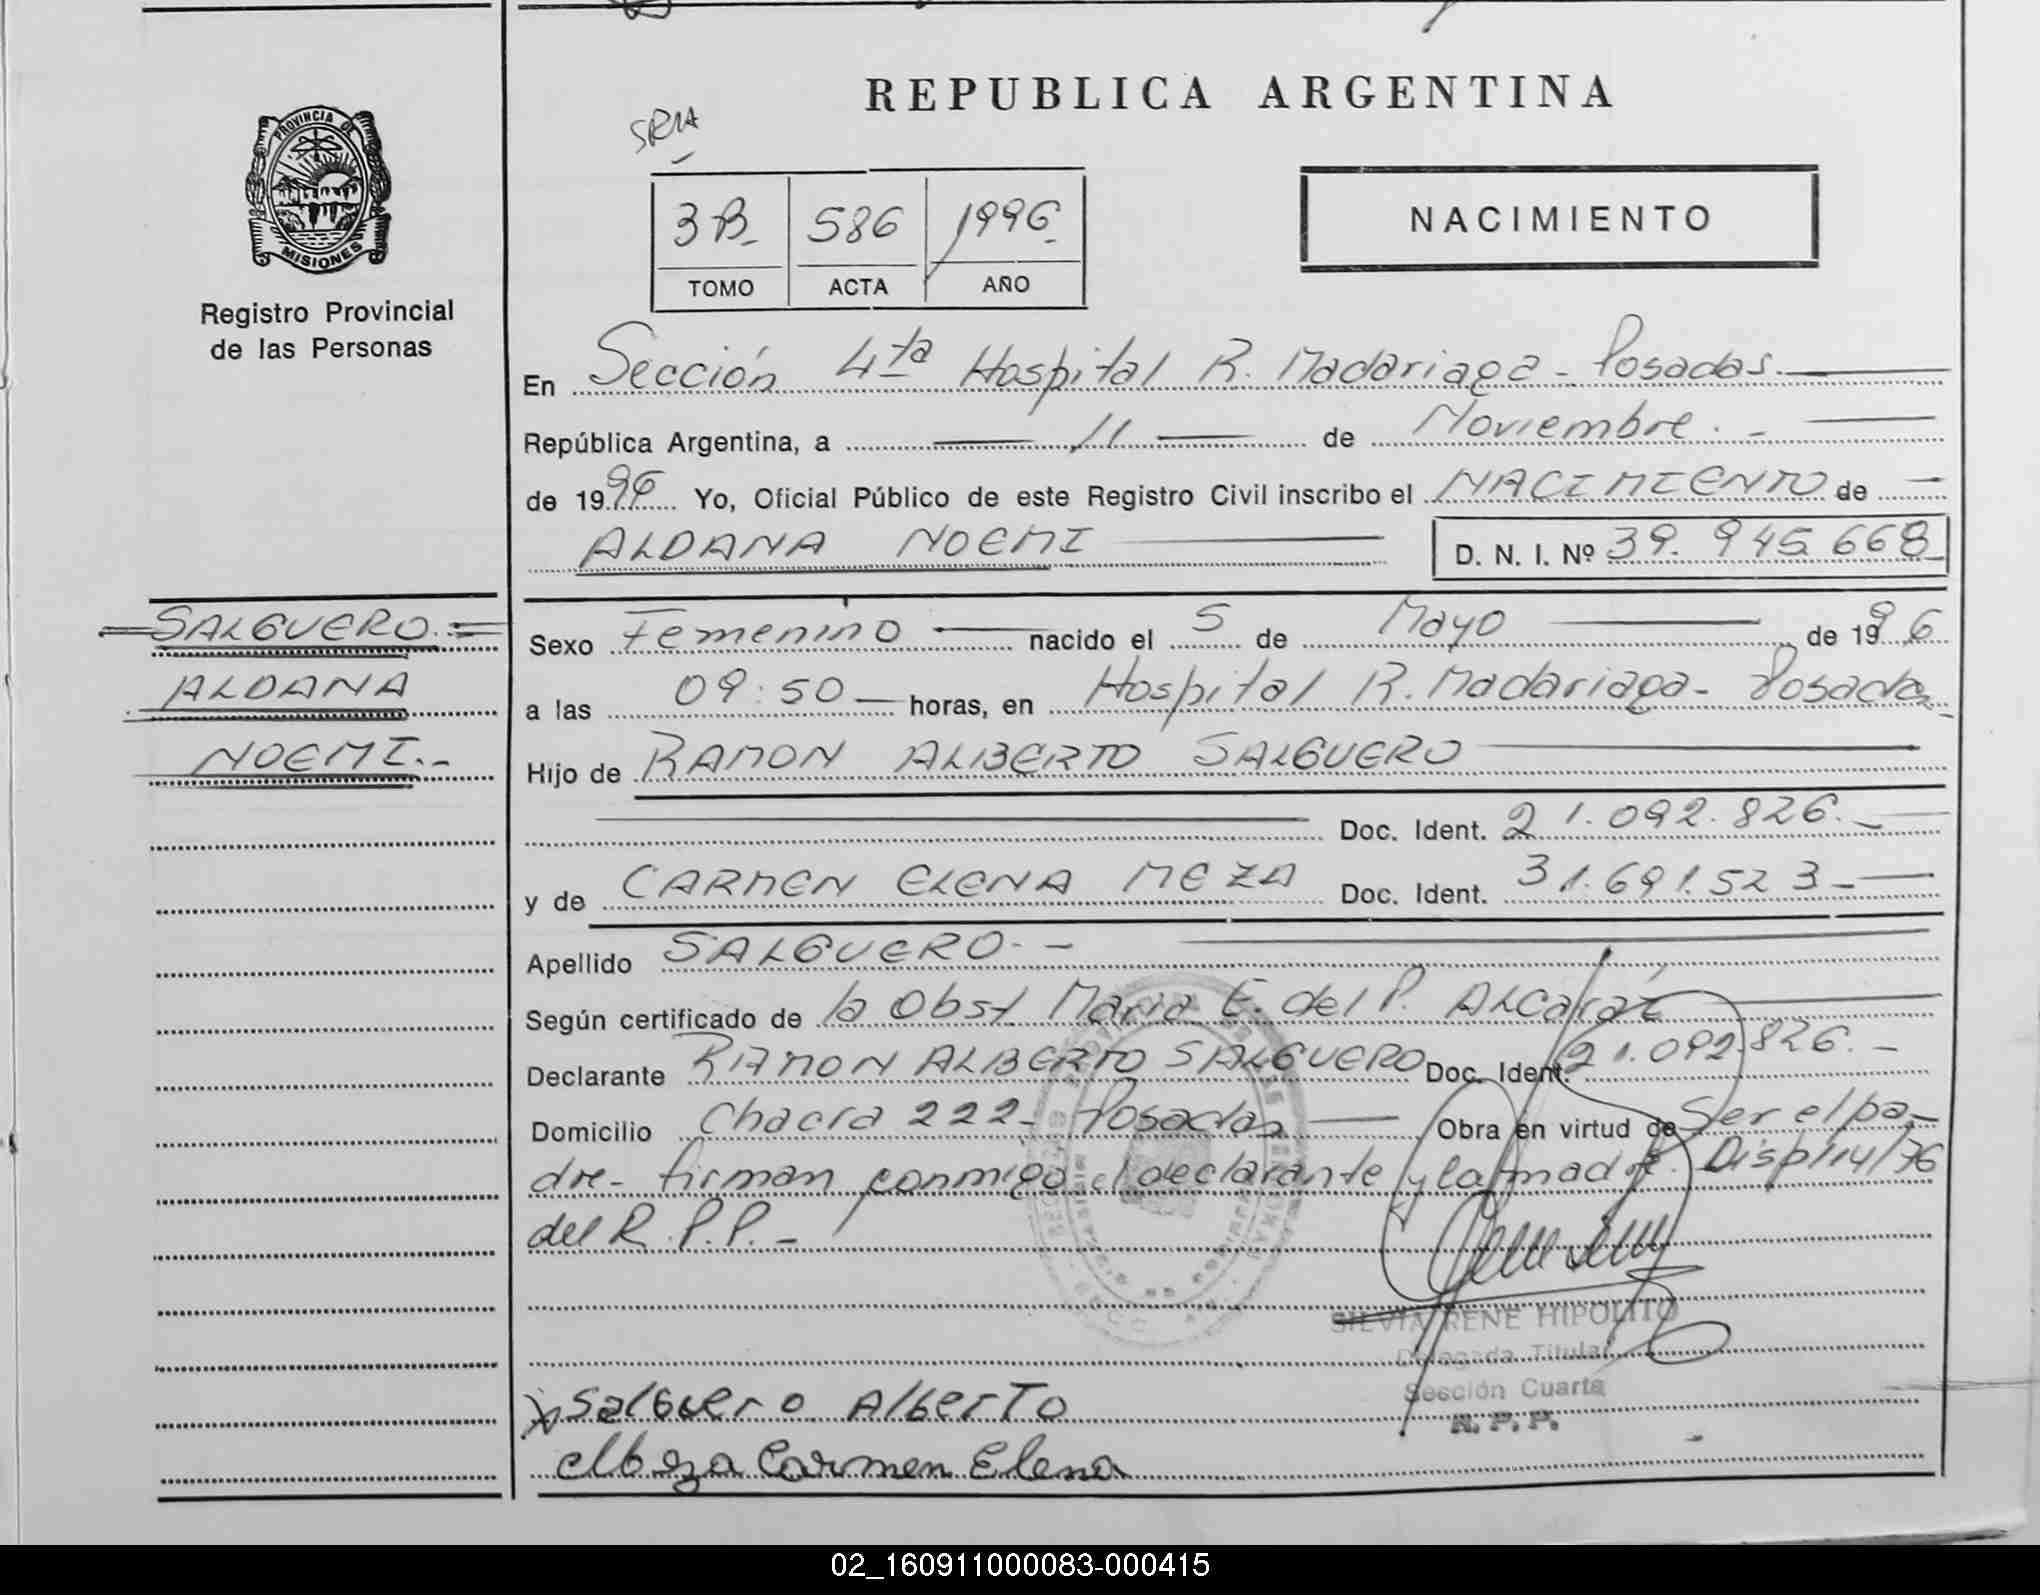 REPUBLICA ARGENTINA
PROVINCIA DE
MISIONES
Registro Provincial
de las Personas
SRIA
3B
586
1996
TOMO
ACTA
AÑO
NACIMIENTO
En Sección 4ta Hospital R. Madariaga - Posadas.
República Argentina, a 11 de Noviembre.
de 1996 Yo, Oficial Público de este Registro Civil inscribo el NACIMIENTO de
ALDANA NOEMI D. N. I. Nº 39.945.668
SALGUERO
ALDANA
NOEMI.-
Sexo Femenino nacido el 5 de Mayo de 1996
a las 09:50 horas, en Hospital R. Madariaga - Posadas
Hijo de RAMON ALBERTO SALGUERO
Doc. Ident. 21.092.826.-
y de CARMEN ELENA MEZA Doc. Ident. 31.691.523-
Apellido SALGUERO.-
Según certificado de la Obst Maria E. del P. Alcaráz
Declarante RAMON ALBERTO SALGUERO Doc. Ident. 21.092.826.-
Domicilio Chacra 222- Posadas Obra en virtud de Ser el pa-
dre- firman conmigo el declarante y la madre. Disp 114/76
del R.P.P.-
SILVIA RENE HIPOLITO
Delegada Titular
Sección Cuarta
R.P.P.
x Salguero Alberto
Meza Carmen Elena
02_160911000083-000415